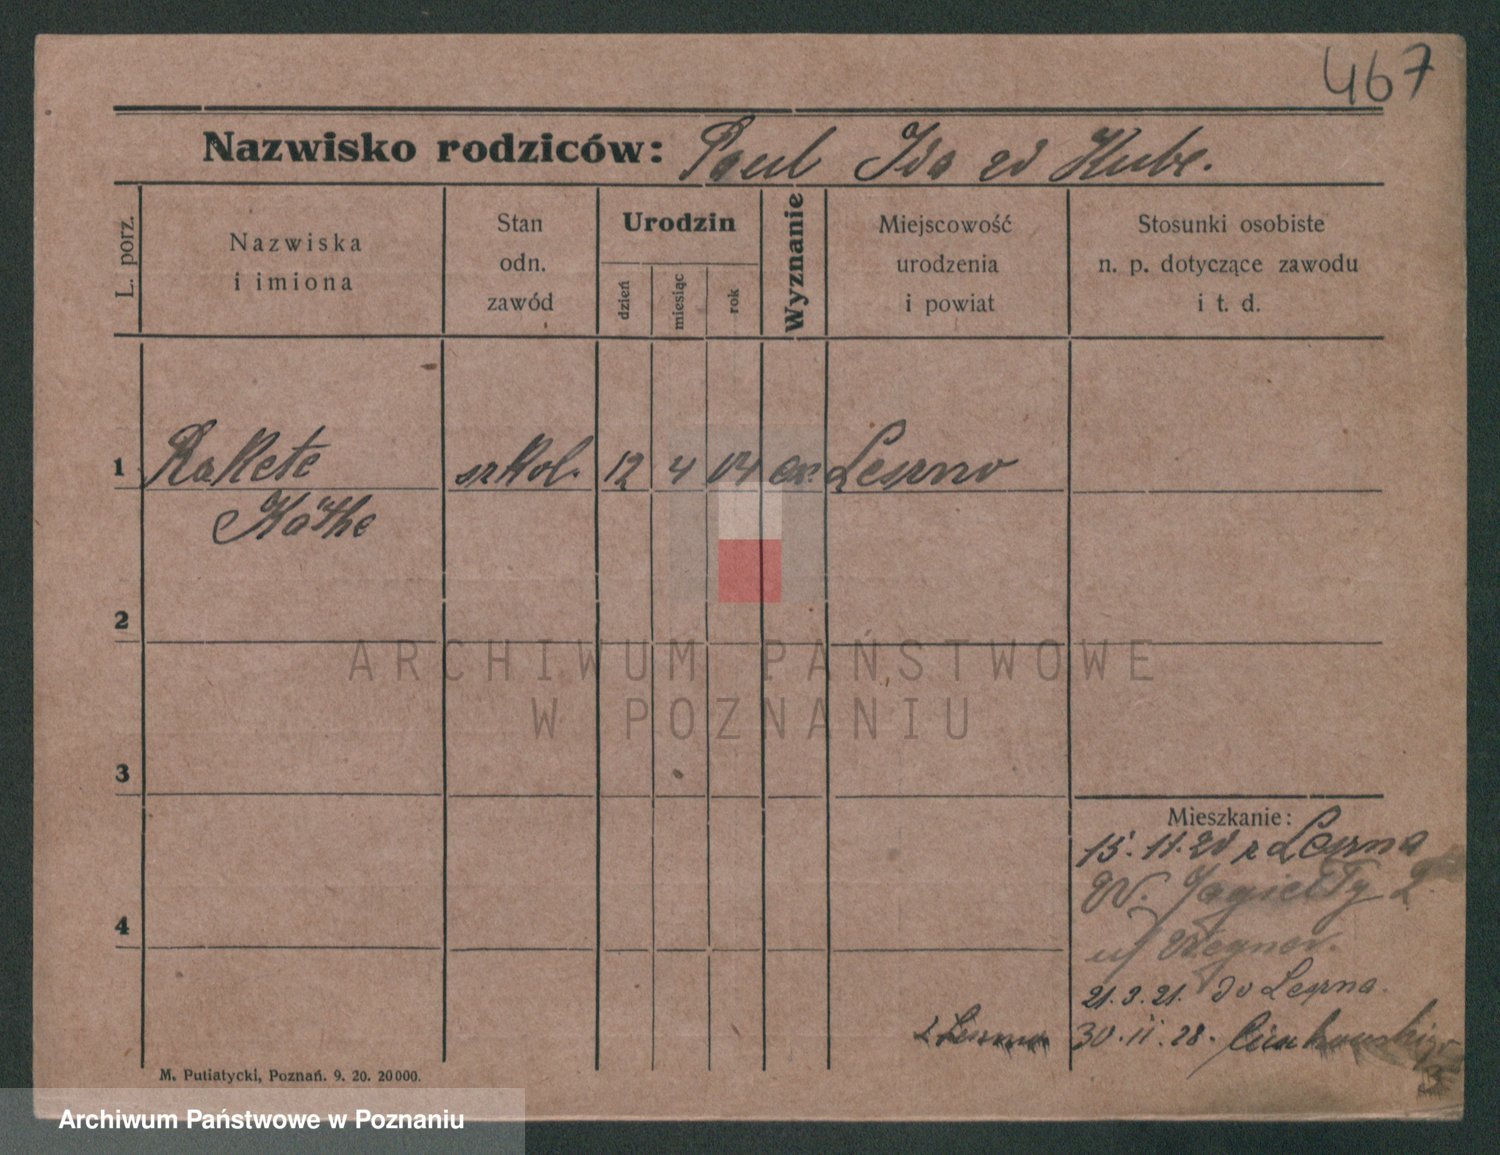 467
Nazwisko rodziców: Paul Ida zd Kube.
L. porz.
Nazwiska
i imiona
Stan
odn.
zawód
Urodzin
dzień
miesiąc
rok
Wyznanie
Miejscowość
urodzenia
i powiat
Stosunki osobiste
n. p. dotyczące zawodu
i t. d.
1 Rakete szkol. 12 4 04 ew. Leszno
Käthe
2
ARCHIWUM PAŃSTWOWE
W POZNANIU
3
Mieszkanie:
15.11.20 z Leszna
W. Jagiełły 2
4
u/
21.3.21. do Leszna.
z Leszna 30.11.28.
3
M. Putiatycki, Poznań. 9. 20. 20000.
Archiwum Państwowe w Poznaniu